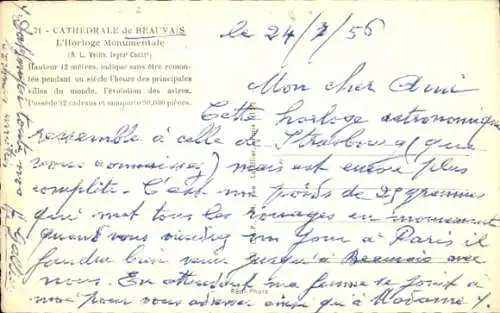 71 - CATHEDRALE de BEAUVAIS
L'Horloge Monumentale
Hauteur 12 mètres, indique sans être remon-
tée pendant un siècle l'heure des principales
villes du monde, l'évolution des astres.
Possède 52 cadrans et comporte 90.000 pièces.
le 24/7/56
Mon cher Ami
Cette horloge astronomique
ressemble à celle de Strasbourg (que
vous connaissez) mais est encore plus
complète. C'est un poids de 25 grammes
qui met tous les rouages en mouvement
quand vous viendrez un jour à Paris il
faudra bien venir jusqu'à Beauvais avec
nous. En attendant ma femme se joint à
moi pour vous adresser ainsi qu'à Madame